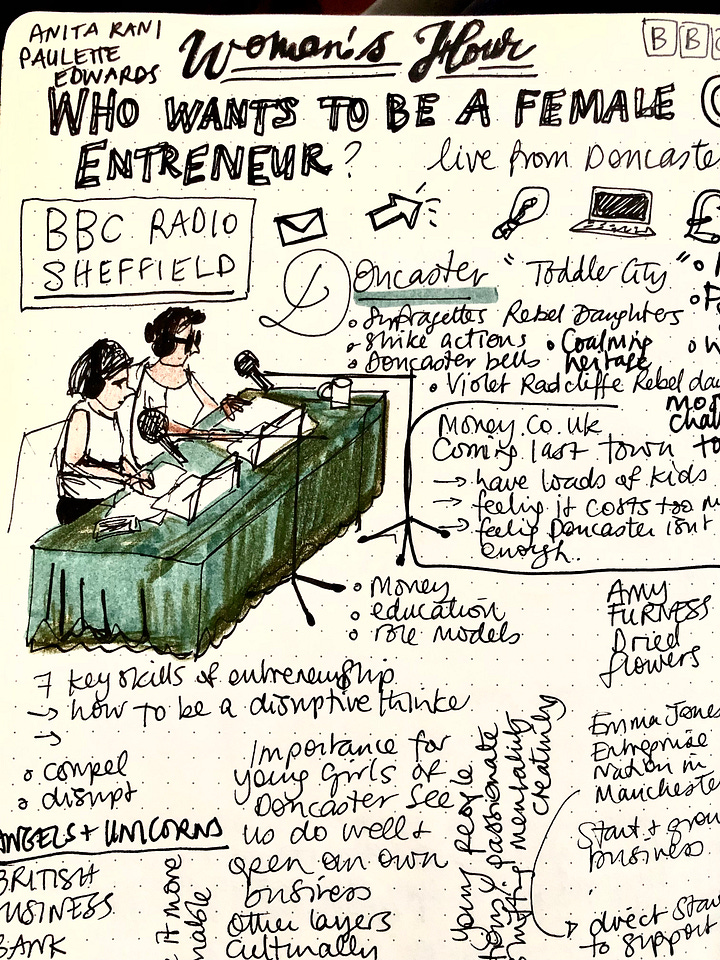 ANITA RANI
PAULETTE
EDWARDS
Woman's Hour
BB
WHO WANTS TO BE A FEMALE
ENTRENEUR?
live from Doncaste
BBC RADIO
SHEFFIELD
Doncaster "Toddler City"
Suffragettes Rebel Daughters
Strike actions • Coalming
heritage
Doncaster bells
Violet Radcliffe Rebel dau
Money.co.uk
Coming last town to
→ have loads of kids
→ feeling it costs too m
→ feelig Doncaster isn't
enough.
• Money
• education
• role models
AMY
FURNESS
Dried
flowers
7 key skills of entreneurship
→ how to be a disruptive thinke
→
• compel
• disrupt
ANGELS + UNICORNS
BRITISH
USINESS
BANK
it more
Importance for
young girls of
Doncaster see
us do well +
open an own
business
Other layers
Culturally
young people
passionate
mentality
creativity
Emma Jones
Enterprise
Nation in
Mancheste
Start + grow
business
direct Star
to support